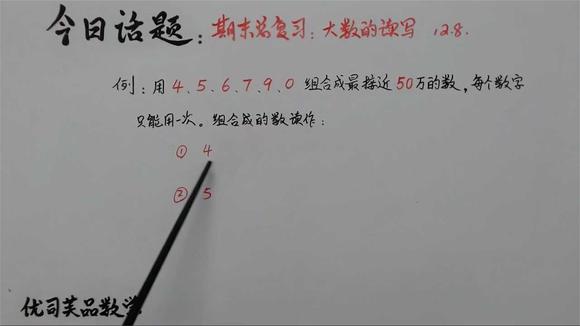 今日话题：期末总复习：大数的读写 12.8.
例：用 4、5、6、7、9、0 组合成最接近 50万的数，每个数字
只能用一次。组合成的数读作：
① 4
② 5
优司芙品数学